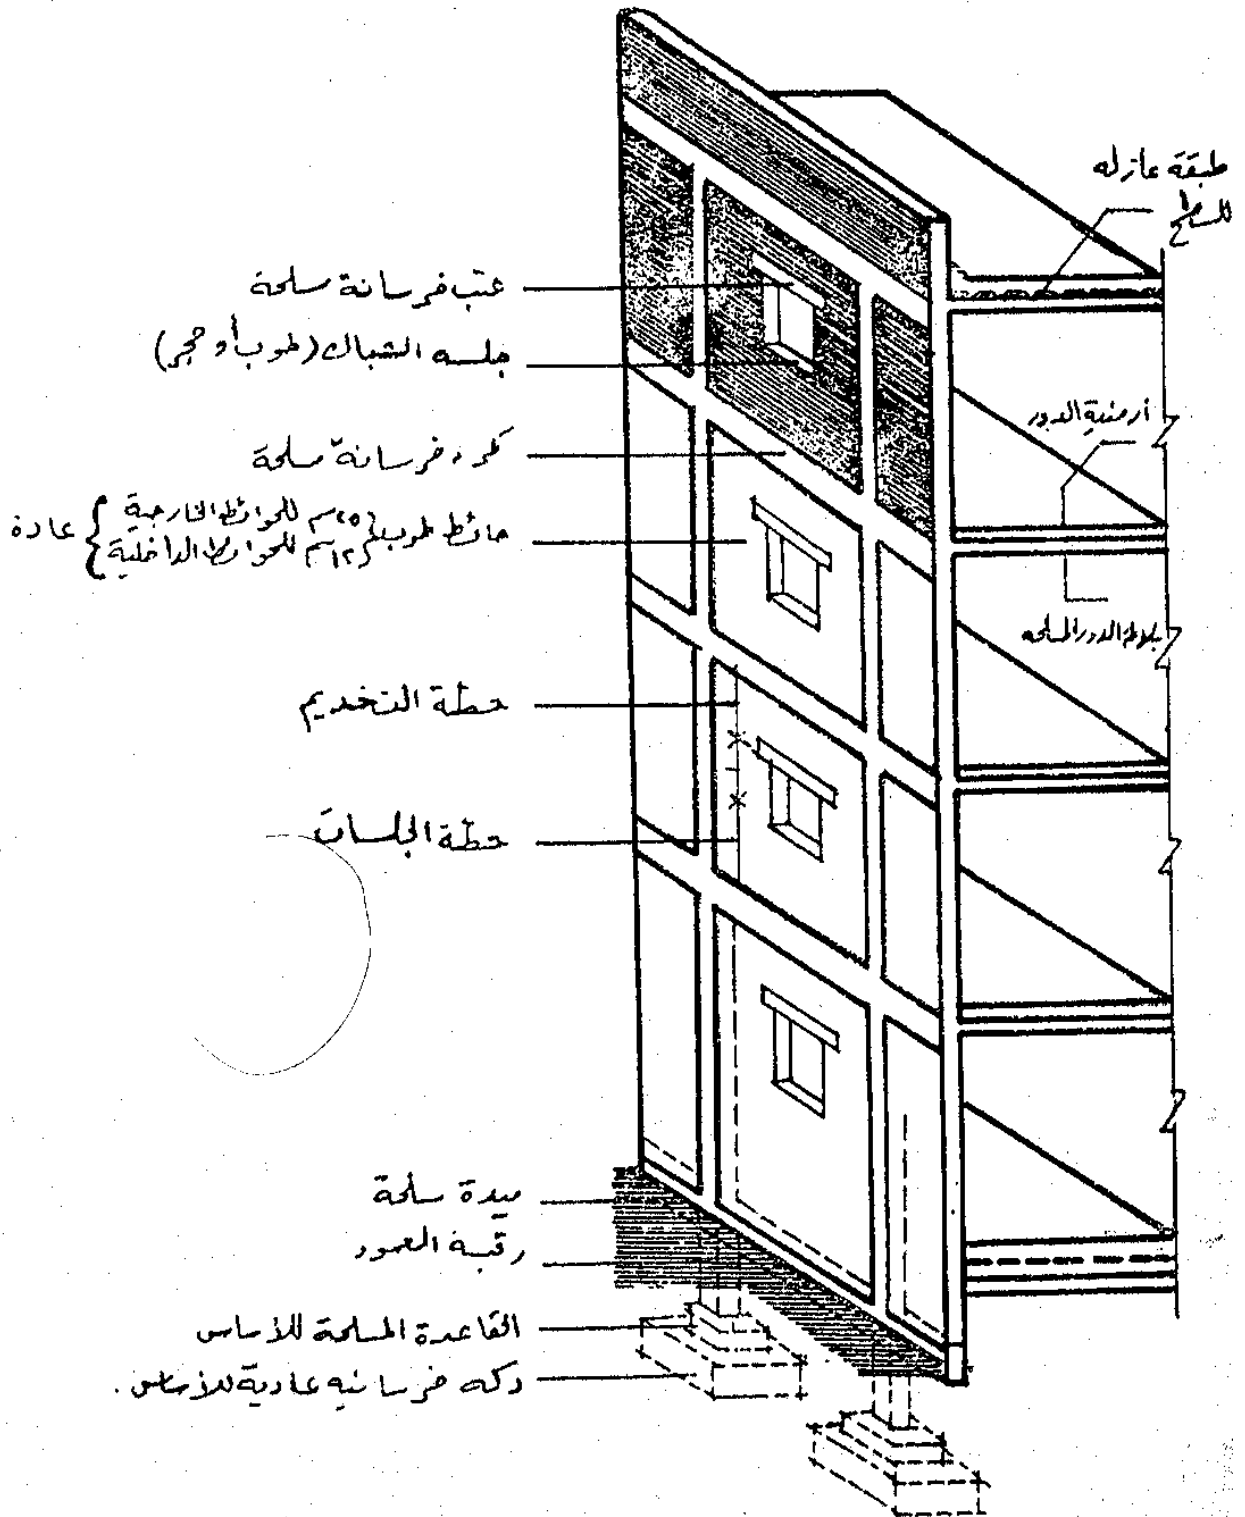 طبقة عازله
للسطح
عتب خرسانة مسلحة
جلسه الشباك (طوب أو حجر)
أرضية الدور
كمره خرسانة مسلحة
حائط طوب { ٢٥سم للحوائط الخارجية } عادة
١٢سم للحوائط الداخلية
بلاطة الدور المسلحه
حطة التخديم
حطة الجلسات
ميدة مسلحة
رقبة العمود
القاعدة المسلحة للأساس
دكه خرسانيه عادية للأساس .